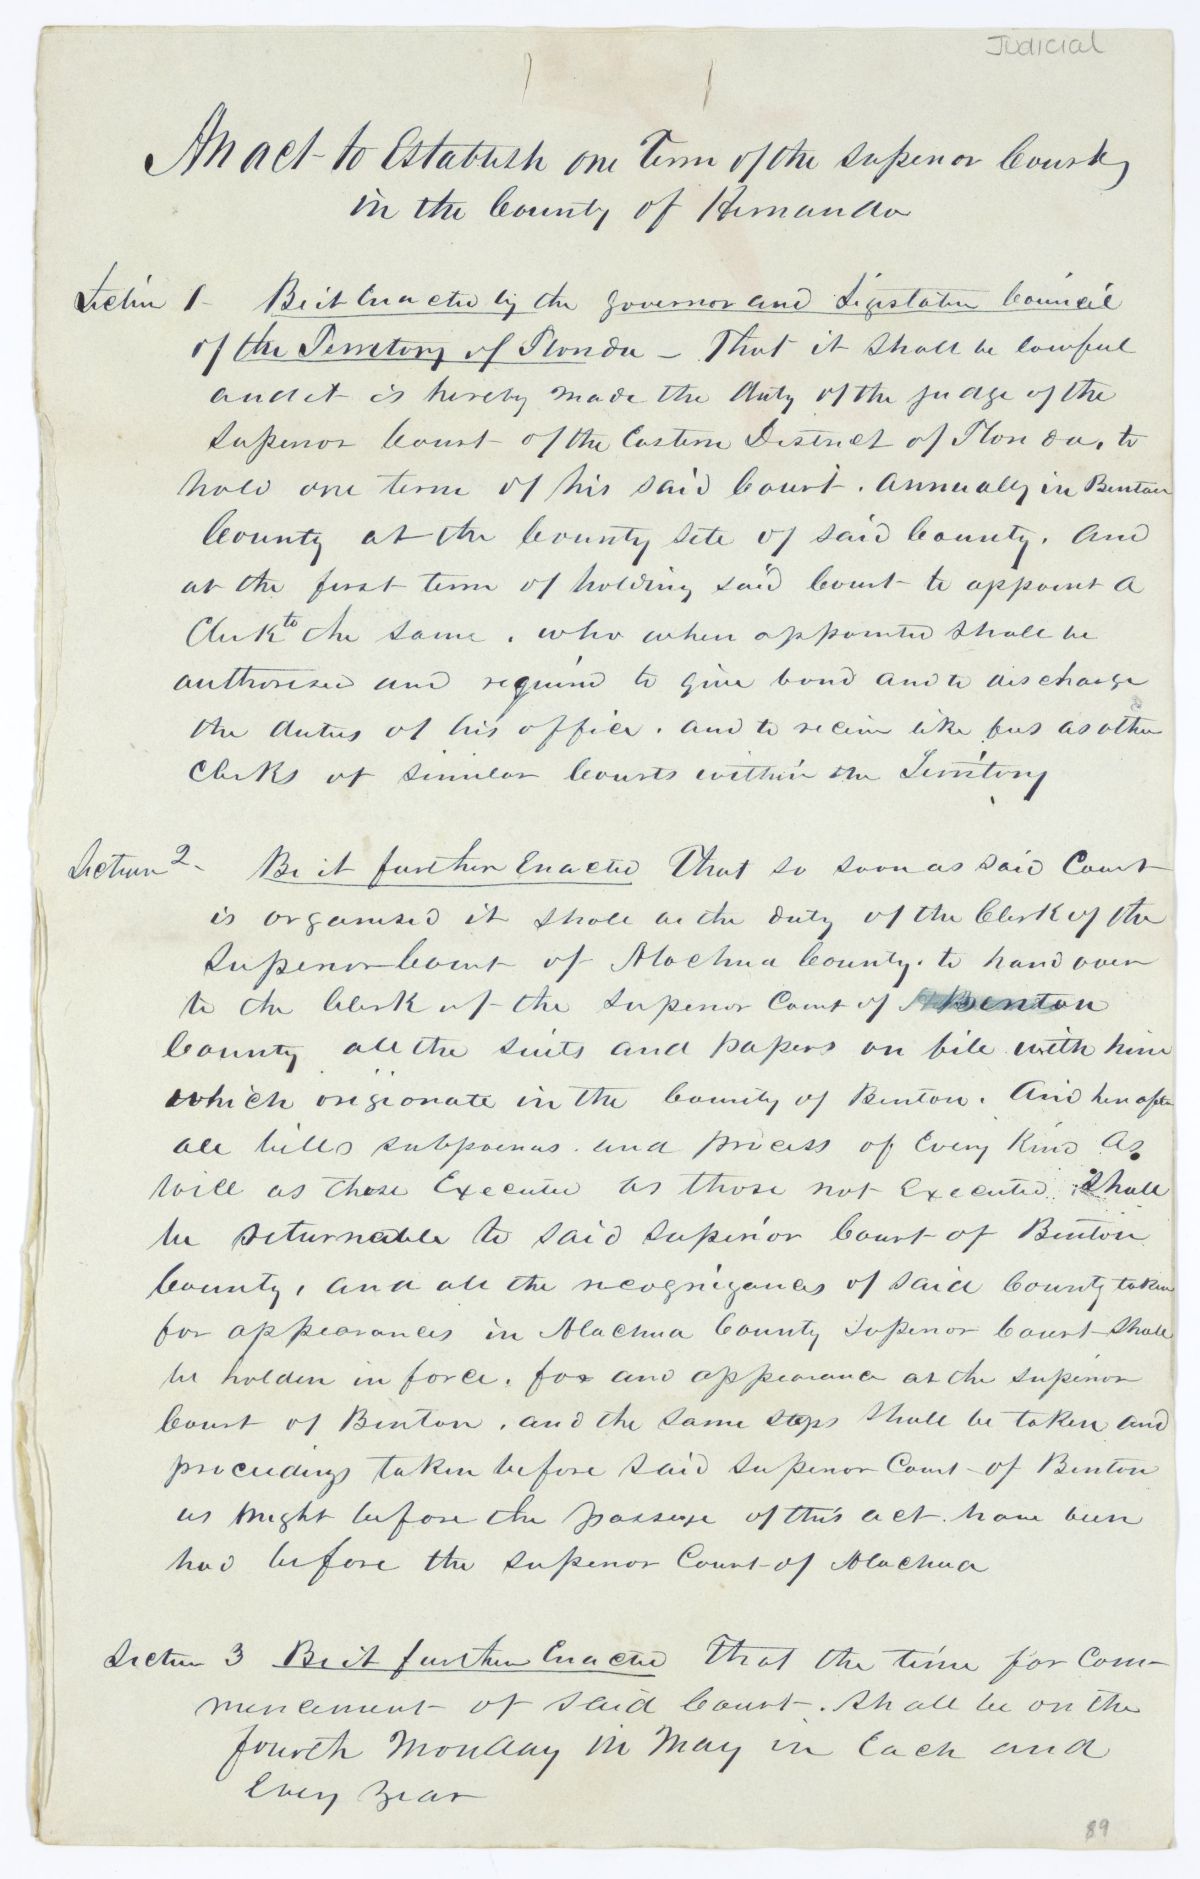 Judicial
An act to Establish one Term of the Superior Court,
in the County of Hernando
Section 1 Be it Enacted by the governor and Legislative Council
of the Territory of Florida – That it shall be lawful
and it is hereby made the duty of the judge of the
Superior Court of the Eastern District of Florida, to
hold one term of his said Court. annually in Benton
County at the County site of said County. and
at the first term of holding said Court to appoint a
Clerk to the same, who when appointed shall be
authorised and required to give bond and to discharge
the duties of his office. and to receive like fees as other
clerks of similar Courts within the Territory
Section 2 - Be it further Enacted That so soon as said Court
is organised it shall be the duty of the Clerk of the
Superior Court of Alachua County. to hand over
to the Clerk of the Superior Court of Benton
County all the suits and papers on file with him
which origionate in the County of Benton. And hereafter
all bills subpoenas and process of Every Kind As
well as those Executed as those not Executed shall
be returnable to said superior Court of Benton
County, and all the recognizances of said County taken
for appearances in Alachua County Superior Court shall
be holden in force. for and appearance at the superior
Court of Benton. and the same steps shall be taken and
proceedings taken before said superior Court of Benton
as might before the passage of this act have been
had before the superior Court of Alachua
Section 3 Be it further Enacted That the time for Com-
mencement of said Court. shall be on the
fourth Monday in May in Each and
Every year
89